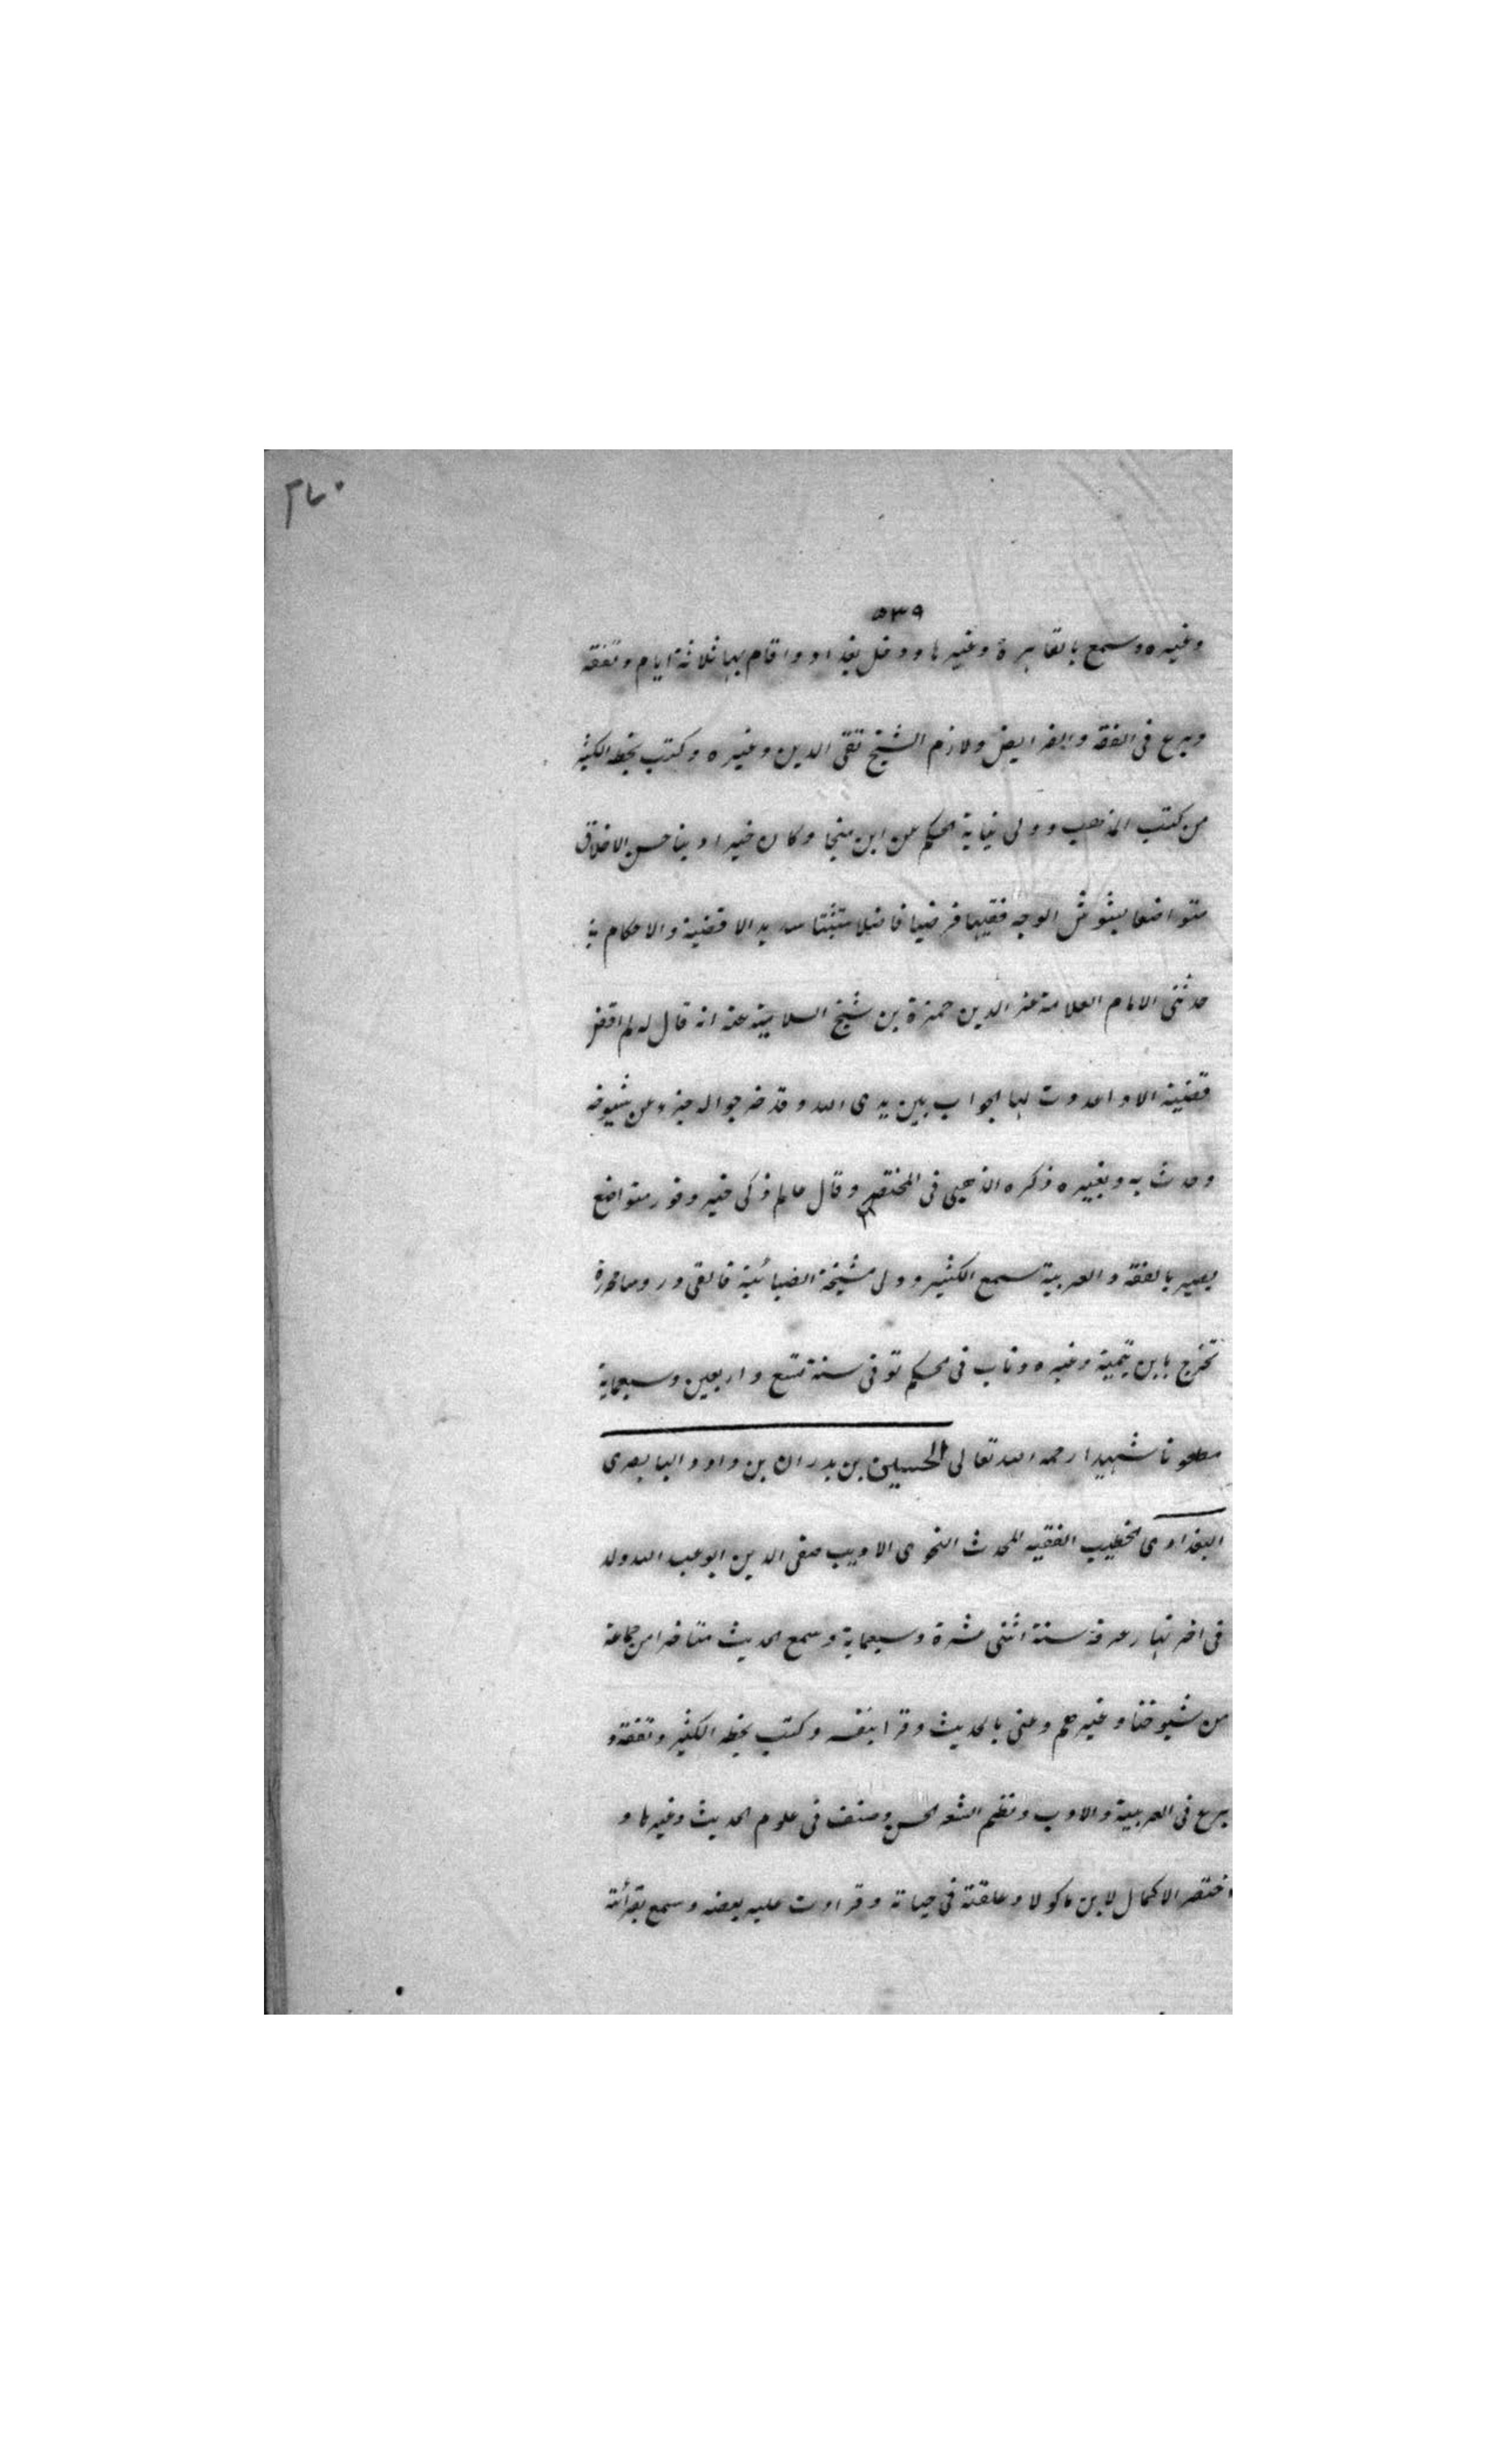 ٢٧٠
٥٣٩
وغيره وسمع بالقاهرة وغيرها ودخل بغداد واقام بها ثلاثة ايام وتفقه
وبرع فى الفقه والفرايض ولازم الشيخ تقى الدين وغيره وكتب بخطه الكثير
من كتب المذهب وولى نيابة الحكم عن ابن منجا وكان خيرا دينا حسن الاخلاق
متواضعا بشوش الوجه فقيها فرضيا فاضلا متثبتا سديد الاقضية والاحكام
حدثنى الامام العلامة عز الدين حمزة بن شيخ السلامية عنه انه قال له لم اقض
قضية الا واعددت لها الجواب بين يدى الله وقد خرجوا له جزء عن شيوخه
وحدث به وبغيره ذكره الذهبى فى المختص وقال عالم ذكى خير وقور متواضع
بصير بالفقه والعربية سمع الكثير وولى مشيخة الضيائية فالقى دروسا محررة
تخرج بابن تيمية وغيره وناب فى الحكم توفى سنة تسع واربعين وسبعماية
مطعونا شهيدا رحمه الله تعالى الحسين بن بدران بن داود البابصرى
البغدادى الخطيب الفقيه المحدث النحوى الاديب صفى الدين ابو عبد الله ولد
فى اخر نهار عرفة سنة اثنى عشرة وسبعماية وسمع الحديث متاخرا من جماعة
من شيوخنا وغيرهم وعنى بالحديث وقرا بنفسه وكتب بخطه الكثير وتفقه و
برع فى العربية والادب ونظم الشعر الحسن وصنف فى علوم الحديث وغيرها و
اختصر الاكمال لابن ماكولا وعلقته فى حياته وقرات عليه بعضه وسمع بقرائته